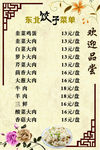 东北饺子菜单
欢迎品尝
韭菜鸡蛋 13元/盘
韭菜大肉 13元/盘
白菜大肉 13元/盘
萝卜大肉 13元/盘
芹菜大肉 14元/盘
茴香大肉 15元/盘
大葱大肉 15元/盘
香菇大肉 16元/盘
牛肉 18元/盘
羊肉 18元/盘
三鲜 18元/盘
酸菜大肉 15元/盘